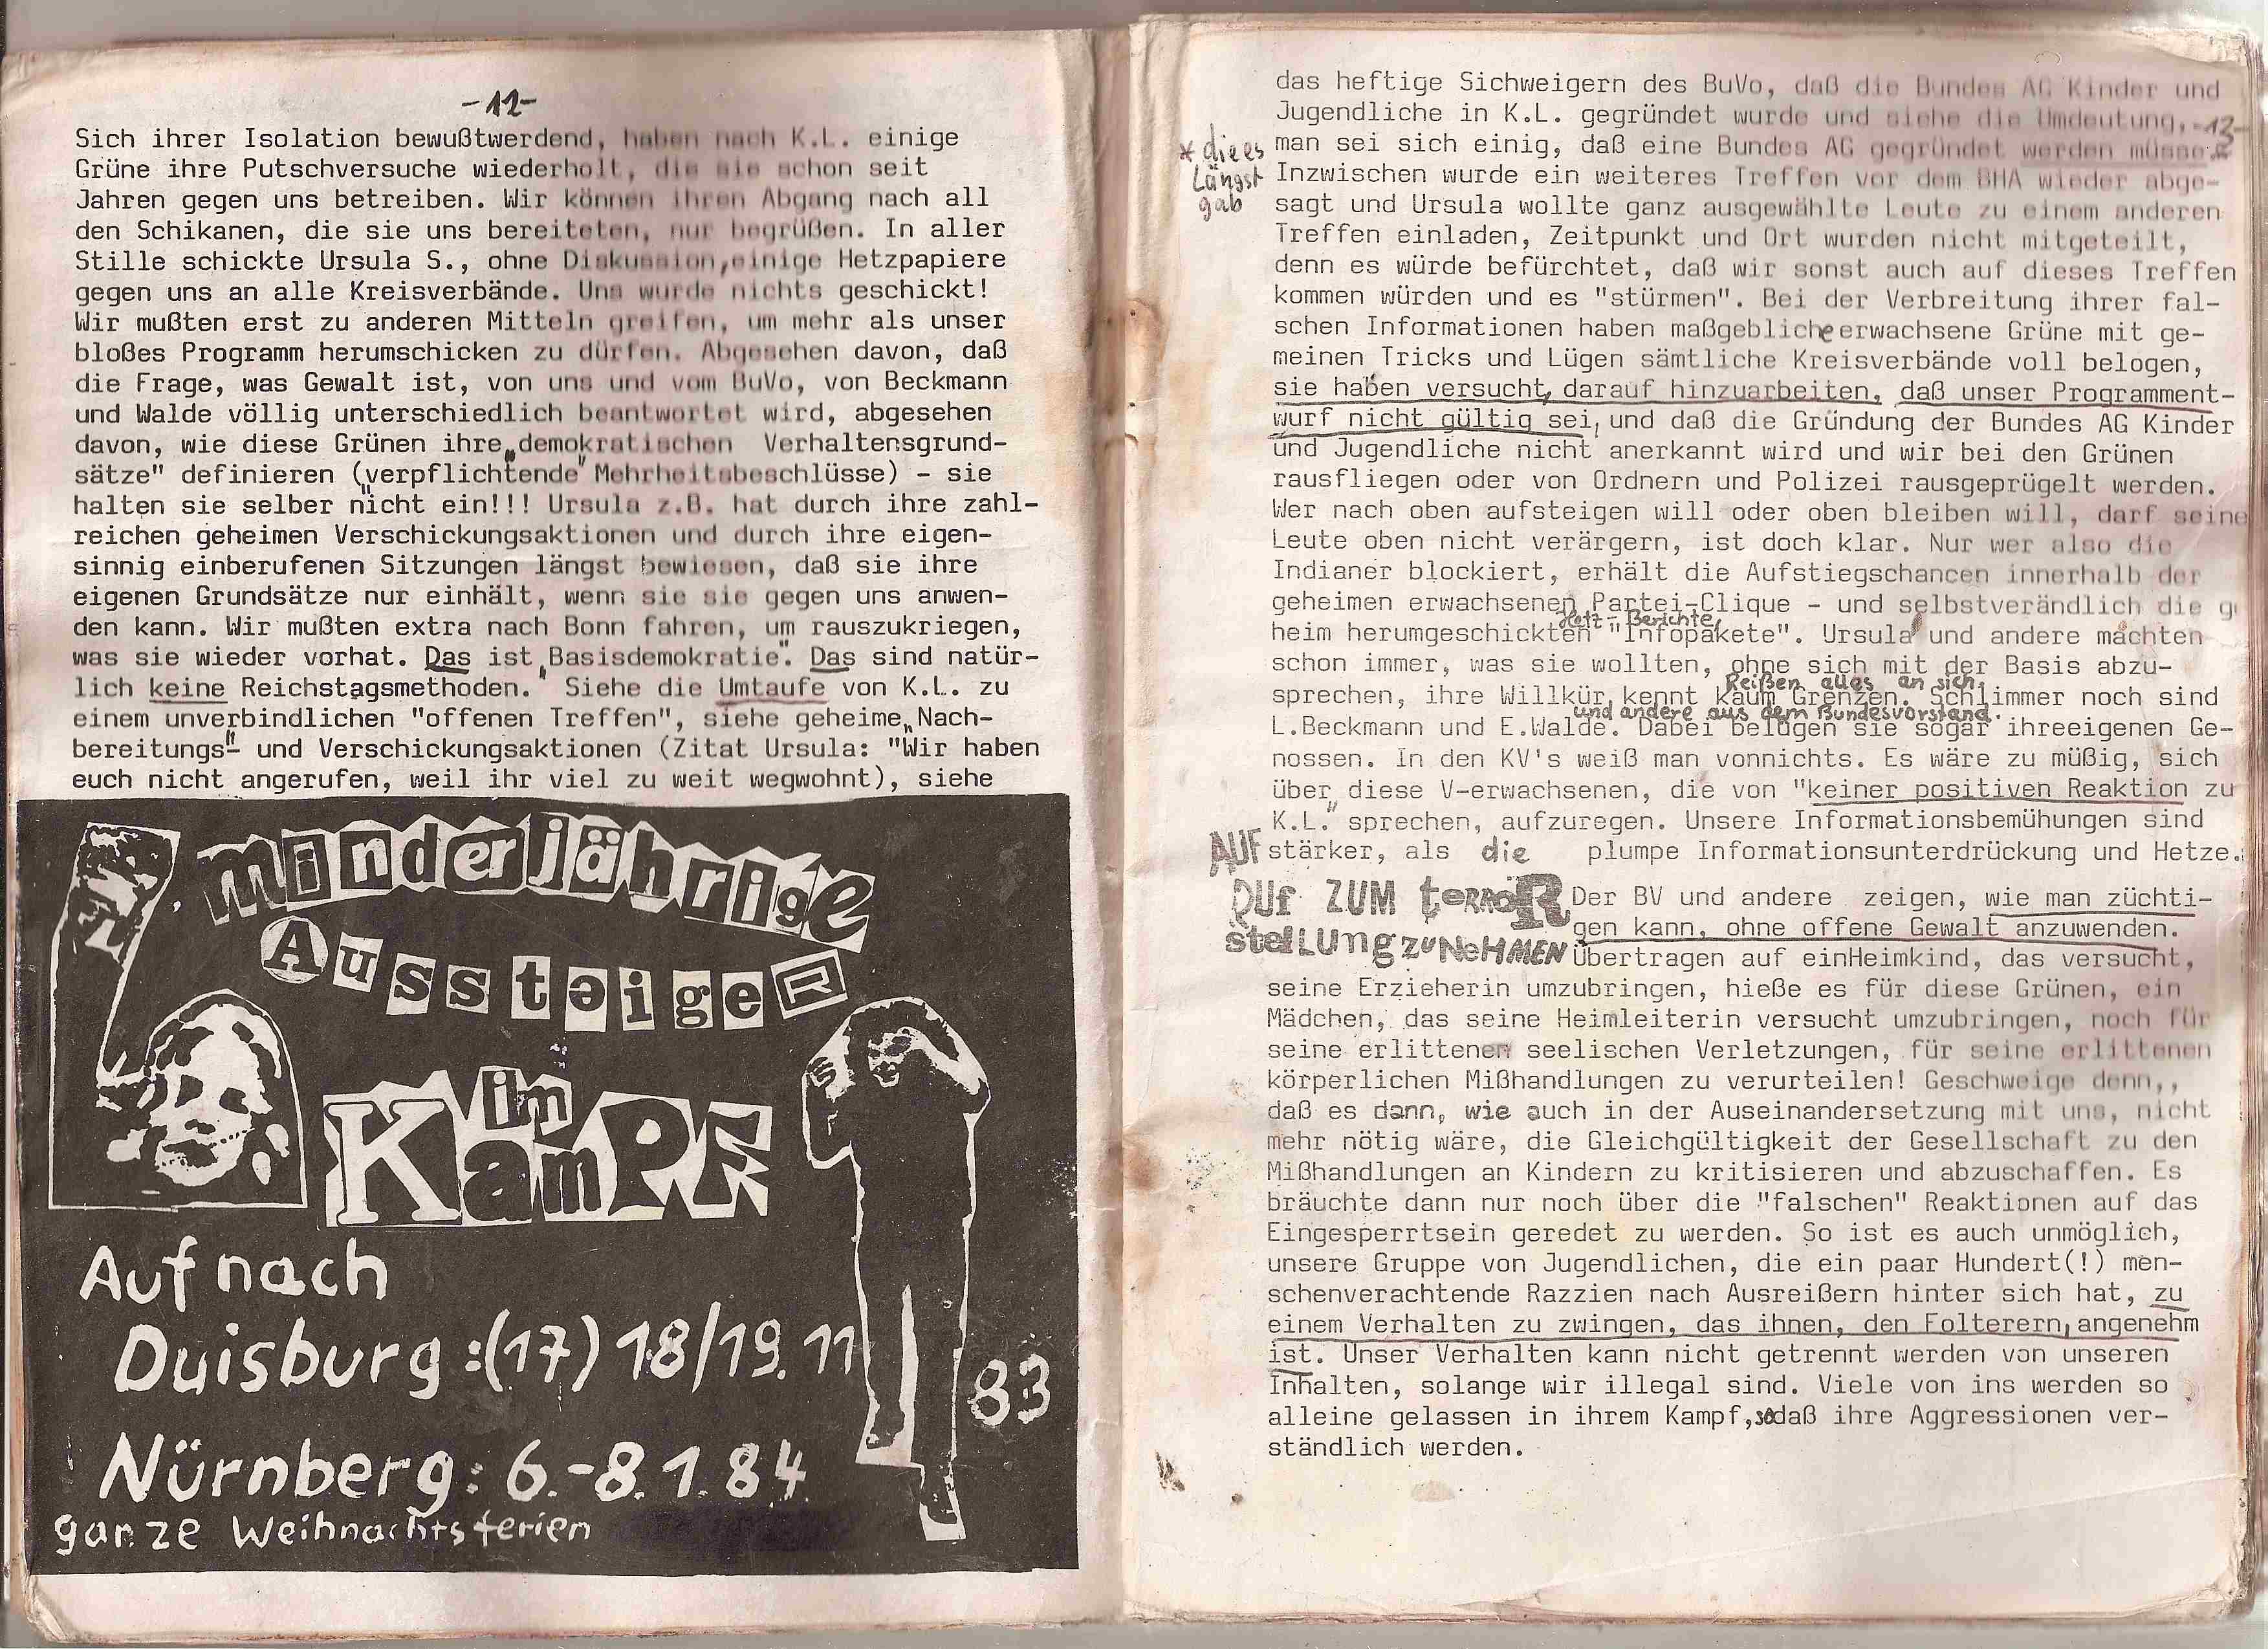 -12-
Sich ihrer Isolation bewußtwerdend, haben nach K.L. einige
Grüne ihre Putschversuche wiederholt, die sie schon seit
Jahren gegen uns betreiben. Wir können ihren Abgang nach all
den Schikanen, die sie uns bereiteten, nur begrüßen. In aller
Stille schickte Ursula S., ohne Diskussion,einige Hetzpapiere
gegen uns an alle Kreisverbände. Uns wurde nichts geschickt!
Wir mußten erst zu anderen Mitteln greifen, um mehr als unser
bloßes Programm herumschicken zu dürfen. Abgesehen davon, daß
die Frage, was Gewalt ist, von uns und vom BuVo, von Beckmann
und Walde völlig unterschiedlich beantwortet wird, abgesehen
davon, wie diese Grünen ihre „demokratischen Verhaltensgrund-
sätze" definieren (verpflichtende" Mehrheitsbeschlüsse) - sie
halten sie selber "nicht ein!!! Ursula z.B. hat durch ihre zahl-
reichen geheimen Verschickungsaktionen und durch ihre eigen-
sinnig einberufenen Sitzungen längst bewiesen, daß sie ihre
eigenen Grundsätze nur einhält, wenn sie sie gegen uns anwen-
den kann. Wir mußten extra nach Bonn fahren, um rauszukriegen,
was sie wieder vorhat. Das ist „Basisdemokratie". Das sind natür-
lich keine Reichstagsmethoden." Siehe die Umtaufe von K.L. zu
einem unverbindlichen "offenen Treffen", siehe geheime „Nach-
bereitungs"- und Verschickungsaktionen (Zitat Ursula: "Wir haben
euch nicht angerufen, weil ihr viel zu weit wegwohnt), siehe
minderjährige
AussteigeR
im
KamPF
Auf nach
Duisburg:(17) 18/19.11
83
Nürnberg: 6.-8.1.84
ganze Weihnachtsferien
das heftige Sichweigern des BuVo, daß die Bundes AG Kinder und
Jugendliche in K.L. gegründet wurde und siehe die Umdeutung,
-13-
man sei sich einig, daß eine Bundes AG gegründet werden müsse.*
* die es
längst
gab
Inzwischen wurde ein weiteres Treffen vor dem BHA wieder abge-
sagt und Ursula wollte ganz ausgewählte Leute zu einem anderen
Treffen einladen, Zeitpunkt und Ort wurden nicht mitgeteilt,
denn es würde befürchtet, daß wir sonst auch auf dieses Treffen
kommen würden und es "stürmen". Bei der Verbreitung ihrer fal-
schen Informationen haben maßgebliche erwachsene Grüne mit ge-
meinen Tricks und Lügen sämtliche Kreisverbände voll belogen,
sie haben versucht, darauf hinzuarbeiten, daß unser Programment-
wurf nicht gültig sei, und daß die Gründung der Bundes AG Kinder
und Jugendliche nicht anerkannt wird und wir bei den Grünen
rausfliegen oder von Ordnern und Polizei rausgeprügelt werden.
Wer nach oben aufsteigen will oder oben bleiben will, darf seine
Leute oben nicht verärgern, ist doch klar. Nur wer also die
Indianer blockiert, erhält die Aufstiegschancen innerhalb der
geheimen erwachsenen Partei-Clique - und selbstverändlich die g
Hetz-Berichte,
heim herumgeschickten "Infopakete". Ursula und andere machten
schon immer, was sie wollten, ohne sich mit der Basis abzu-
Reißen alles an sich,
sprechen, ihre Willkür kennt kaum Grenzen. Schlimmer noch sind
und andere aus dem Bundesvorstand.
L.Beckmann und E.Walde. Dabei belügen sie sogar ihreeigenen Ge-
nossen. In den KV's weiß man vonnichts. Es wäre zu müßig, sich
über diese V-erwachsenen, die von "keiner positiven Reaktion zu
K.L." sprechen, aufzuregen. Unsere Informationsbemühungen sind
stärker, als die plumpe Informationsunterdrückung und Hetze.
AUF
RUf ZUM terroR
stelLUng zu NeHMEN
Der BV und andere zeigen, wie man züchti-
gen kann, ohne offene Gewalt anzuwenden.
Übertragen auf einHeimkind, das versucht,
seine Erzieherin umzubringen, hieße es für diese Grünen, ein
Mädchen, das seine Heimleiterin versucht umzubringen, noch für
seine erlittenen seelischen Verletzungen, für seine erlittenen
körperlichen Mißhandlungen zu verurteilen! Geschweige denn,,
daß es dann, wie auch in der Auseinandersetzung mit uns, nicht
mehr nötig wäre, die Gleichgültigkeit der Gesellschaft zu den
Mißhandlungen an Kindern zu kritisieren und abzuschaffen. Es
bräuchte dann nur noch über die "falschen" Reaktionen auf das
Eingesperrtsein geredet zu werden. So ist es auch unmöglich,
unsere Gruppe von Jugendlichen, die ein paar Hundert(!) men-
schenverachtende Razzien nach Ausreißern hinter sich hat, zu
einem Verhalten zu zwingen, das ihnen, den Folterern, angenehm
ist. Unser Verhalten kann nicht getrennt werden von unseren
Inhalten, solange wir illegal sind. Viele von ins werden so
alleine gelassen in ihrem Kampf,sodaß ihre Aggressionen ver-
ständlich werden.